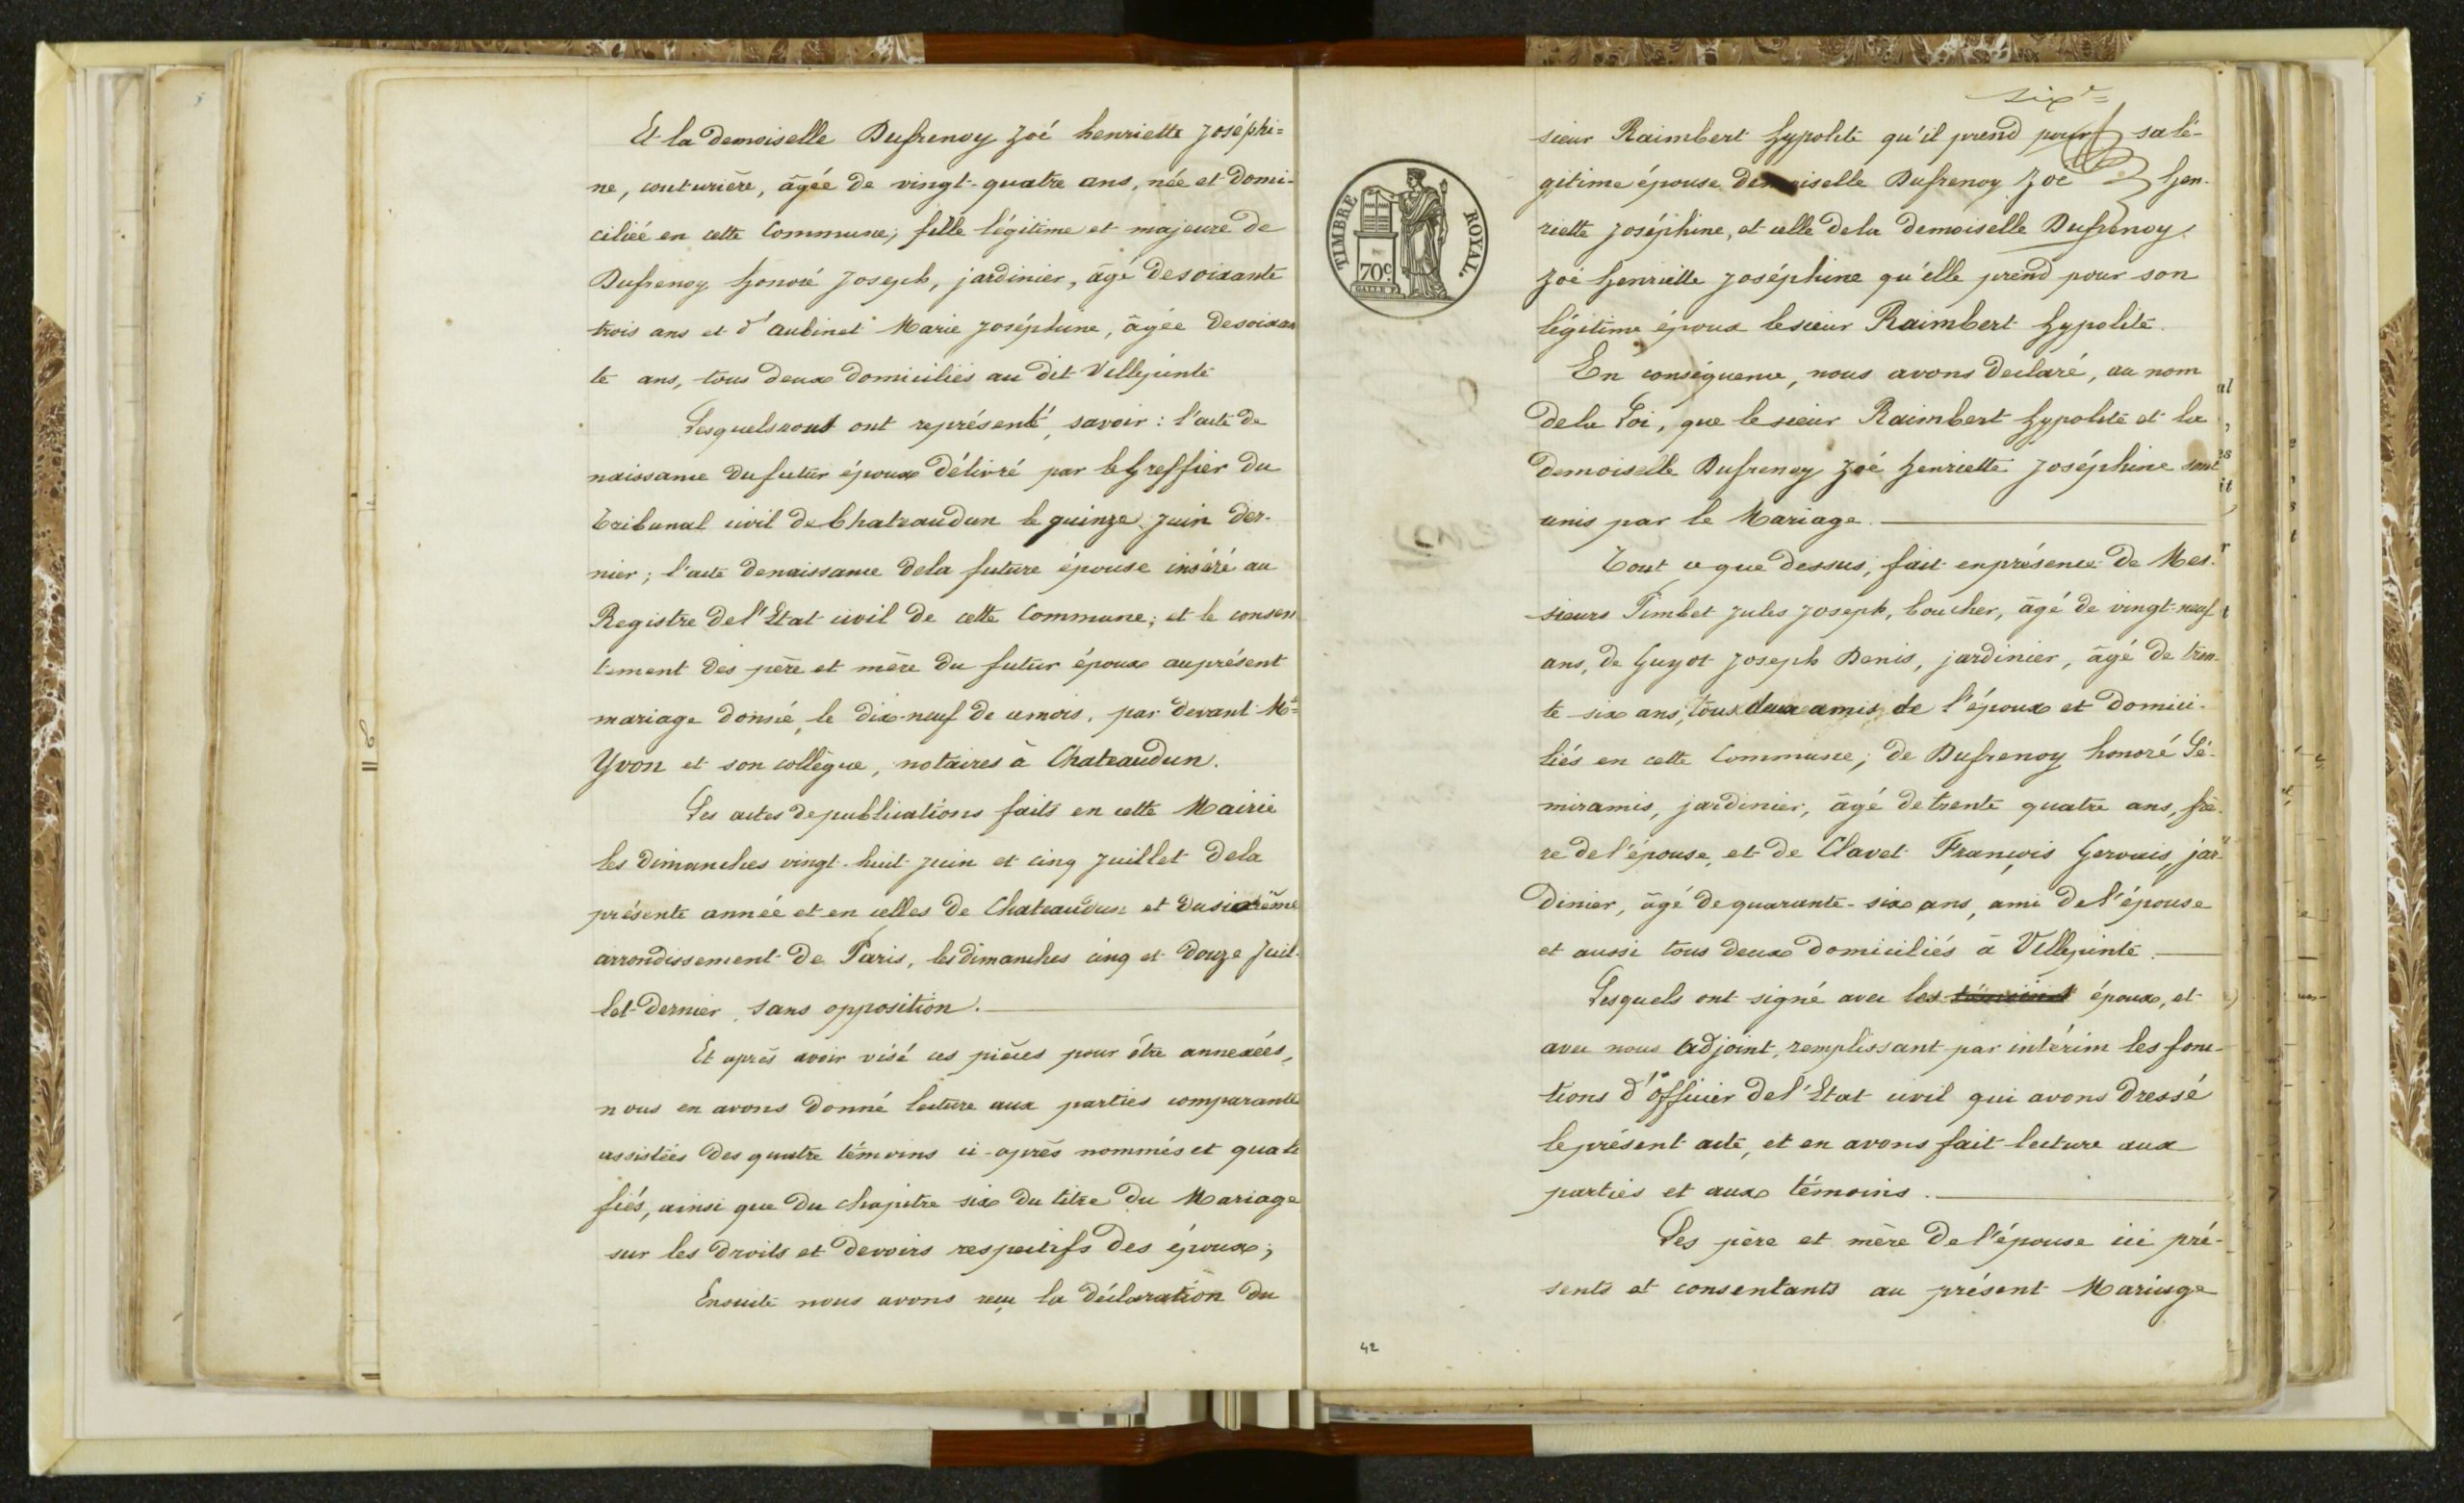 Et la demoiselle Dufrenoy Zoé henriette Joséphi=
ne, couturière, âgée de vingt-quatre ans, née et domi-
ciliée en cette Commune; fille légitime et majeure de
Dufrenoy honoré Joseph, jardinier, âgé de soixante
trois ans et d'aubinet Marie Joséphine, âgée de soixan
te ans, tous deux domiciliés au dit Villejuinte
Lesquels nous ont représenté, savoir : l'acte de
naissance du futur époux délivré par le Greffier du
Tribunal civil de Chateaudun le quinze Juin der-
nier ; l'acte de naissance de la future épouse inséré au
Registre de l'Etat civil de cette Commune; et le consen
tement des père et mère du futur époux au présent
mariage donné, le dix-neuf de ce mois, par devant Me
Yvon et son collègue, notaires à Chateaudun.
Les actes de publications faits en cette Mairie
les dimanches vingt-huit Juin et cinq Juillet de la
présente année et en celles de Chateaudun et du sixième
arrondissement de Paris, les dimanches cinq et douze Juil-
let dernier, sans opposition.
Et après avoir visé ces pièces pour être annexées,
nous en avons donné lecture aux parties comparante
assistées des quatre témoins ci-après nommés et quali
fiés, ainsi que du chapitre six du titre du Mariage
sur les droits et devoirs respectifs des époux;
Ensuite nous avons reçu la déclaration du
six
TIMBRE ROYAL.
70c.
sieur Raimbert hypolite qu'il prend pour sa lé-
gitime épouse demoiselle Dufrenoy Zoé hen-
riette Joséphine, et celle de la demoiselle Dufrenoy
Zoé henriette Joséphine qu'elle prend pour son
légitime époux le sieur Raimbert hypolite.
En conséquence, nous avons déclaré, au nom
de la Loi, que le sieur Raimbert hypolite et la
demoiselle Dufrenoy Zoé henriette Joséphine sont
unis par le Mariage.
Tout ce que dessus, fait en présence de Mes-
sieurs Timbet Jules Joseph, boucher, âgé de vingt-neuf
ans, de Guyot Joseph Denis, jardinier, âgé de tren-
te six ans, tous deux amis de l'époux et domici-
liés en cette Commune; de Dufrenoy honoré Sé-
miramis, jardinier, âgé de trente quatre ans, frè-
re de l'épouse, et de Clavet François Gervais, jar-
dinier, âgé de quarante-six ans, ami de l'épouse
et aussi tous deux domiciliés à Villejuinte.
Lesquels ont signé avec les époux, et
avec nous adjoint, remplissant par intérim les fonc-
tions d'officier de l'Etat civil qui avons dressé
le présent acte, et en avons fait lecture aux
parties et aux témoins.
Les père et mère de l'épouse ici pré-
sents et consentants au présent Mariage
42